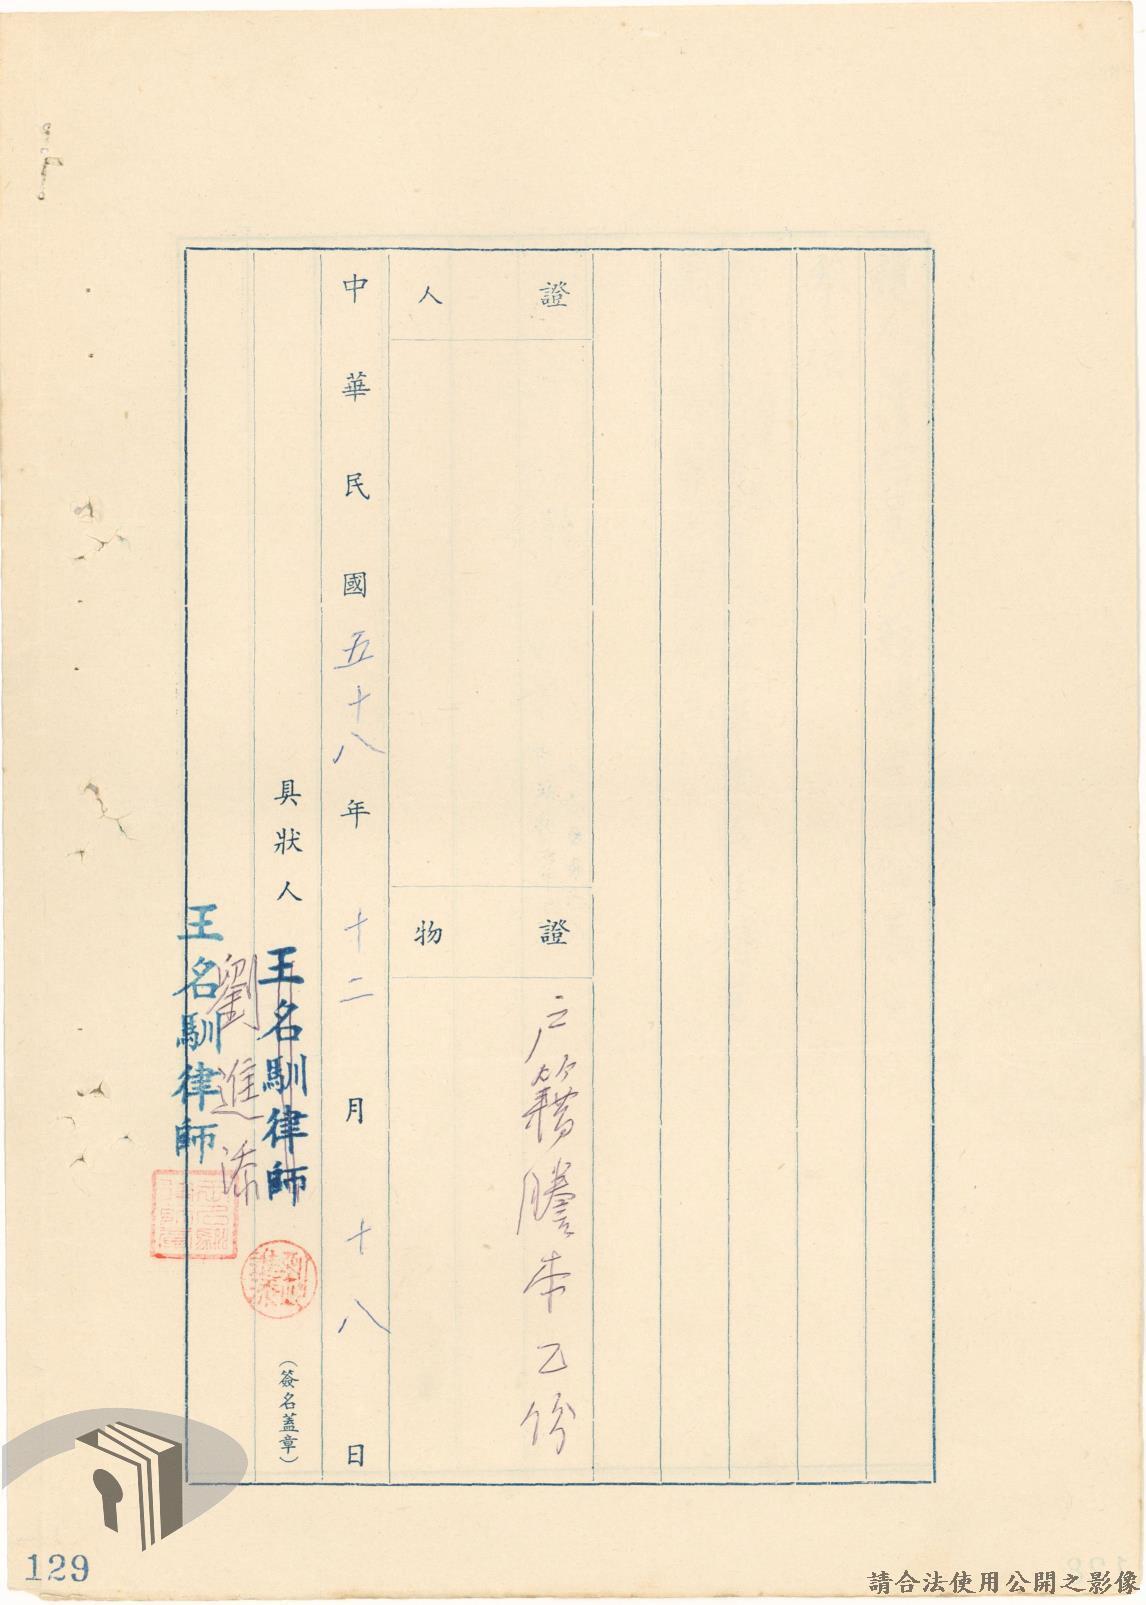 證人
證物
戶籍謄本乙份
中華民國五十八年十二月十八日
具狀人
王名馴律師
(簽名蓋章)
劉進添
王名馴律師
129
請合法使用公開之影像